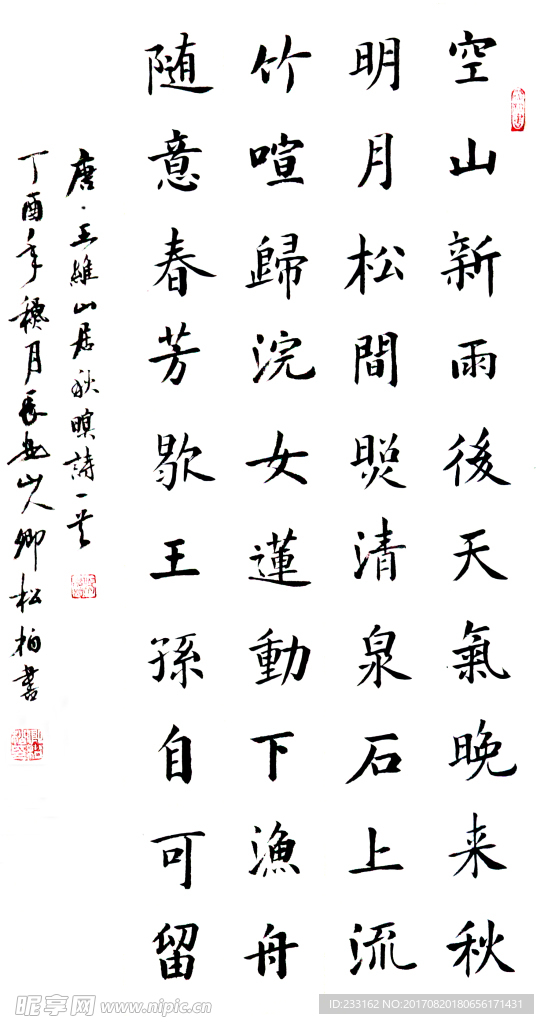 空山新雨後天氣晚来秋
明月松間照清泉石上流
竹喧歸浣女蓮動下漁舟
随意春芳歇王孫自可留
唐·王維山居秋暝詩一首
丁酉年穐月長安山人卿松柏書
昵享网 www.nipic.cn
ID:233162 NO:20170820180656171431